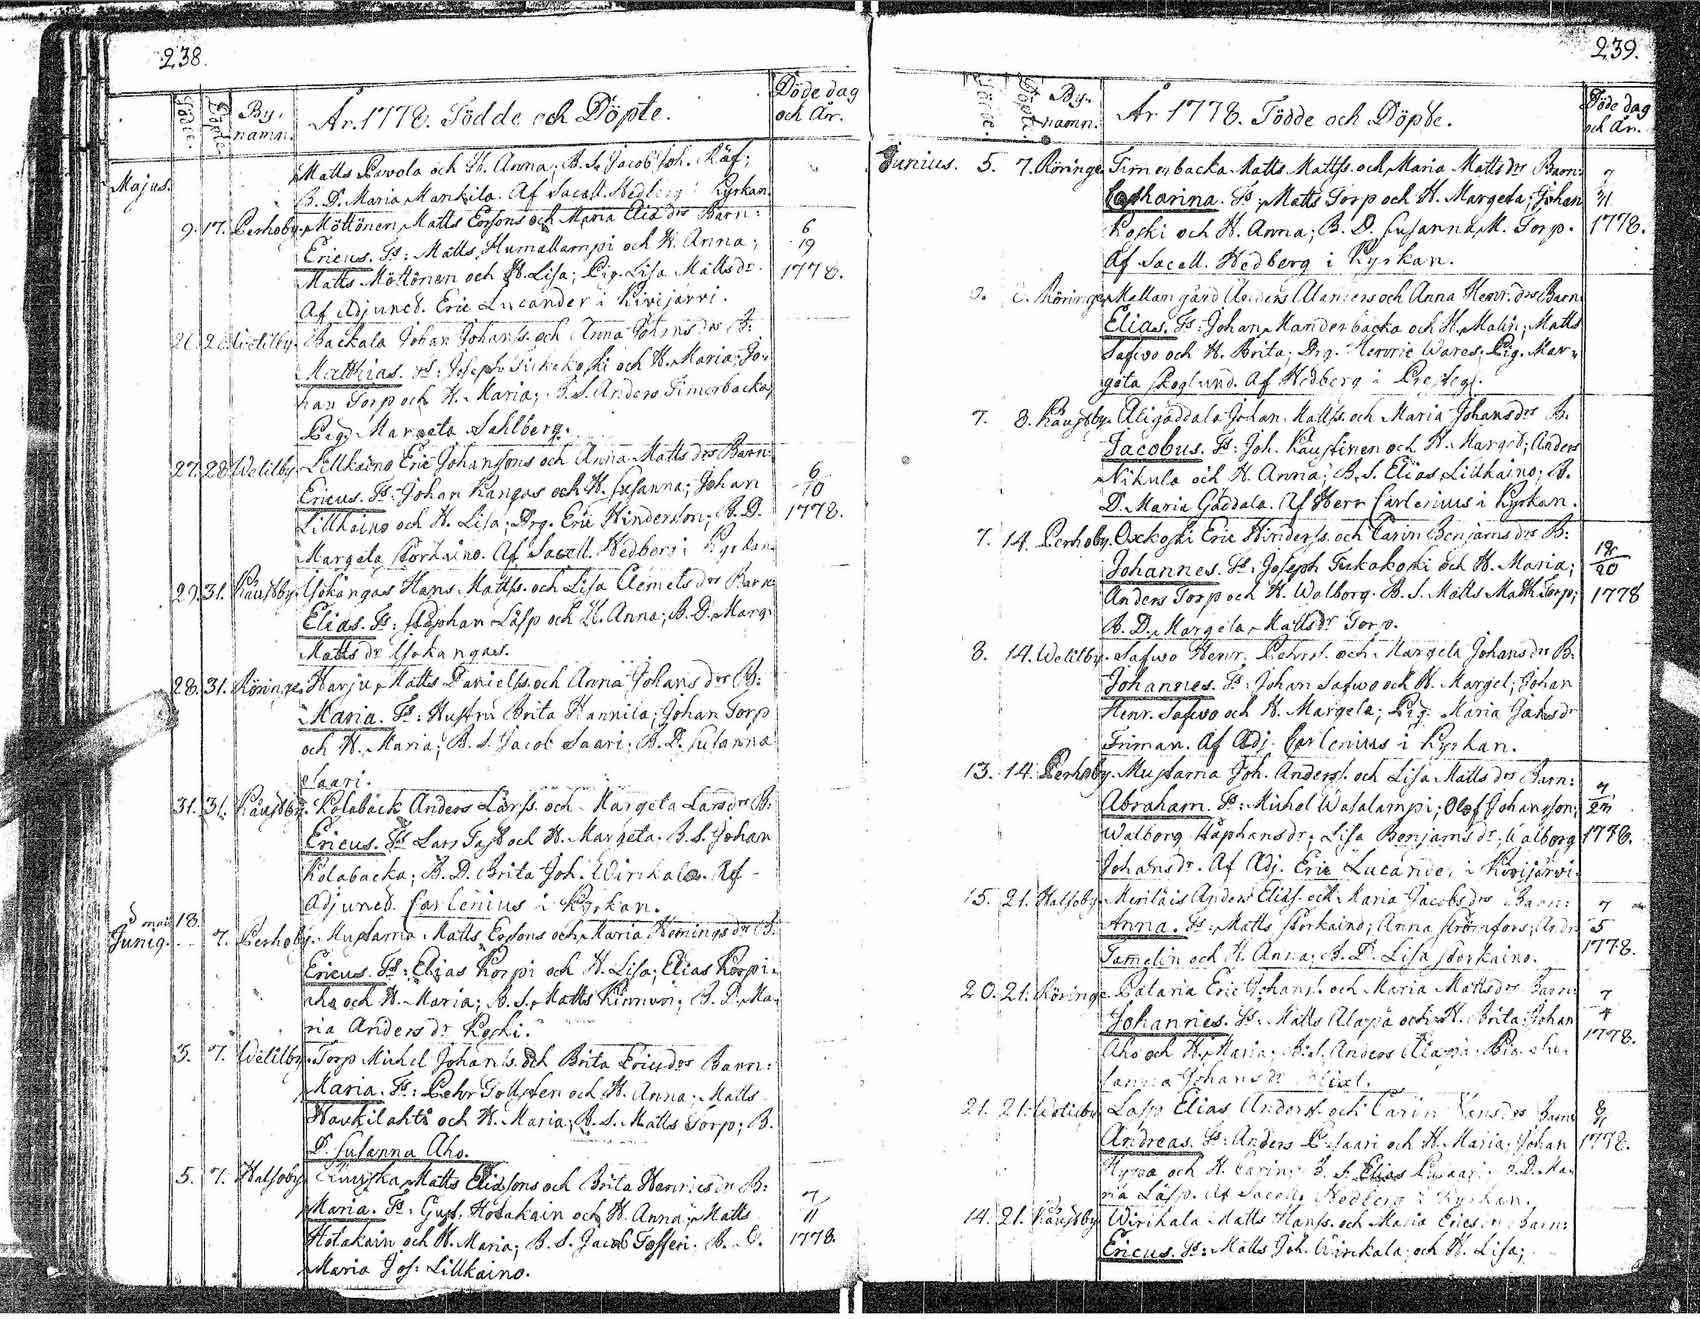 238.
Födde
Döpte
By-
namn.
År. 1778. Födde och Döpte.
Döde dag
och År.
Majus.
Matts Pavola och H. Anna; B. S. Jacob Joh. Räf;
B. D. Maria Mankila. Af Sacell. Hedberg i Kyrkan.
9. 17. Perhoby. Möttönen Matts Ersons och Maria Eliæ dr Barn:
6
Ericus. Fs: Matts Humallampi och H. Anna;
19
Matts Möttönen och H. Lisa; Pig. Lisa Matts dr.
1778.
Af Adjunct. Eric Lucander i Kivijärvi.
Backala Johan Johanss. och Anna Johans dr B:
Matthias. Fs: Joseph Tuckakoski och H. Maria; Jo-
han Torp och H. Maria; B. S. Anders Timerbacka;
Pig. Margeta Sahlberg.
27. 28. Wetilby. Lillkaino Eric Johansons och Anna Matts dr Barn:
6
Ericus. Fs: Johan Kangas och H. Susanna; Johan
10
Lillkaino och H. Lisa; Drg. Eric Hinderson; B. D.
1778.
Margeta Storkaino. Af Sacell. Hedberg i Kyrkan.
29. 31. Kaustby. Isokangas Hans Mattss. och Lisa Clemets dr Barn:
Elias. Fs: Staphan Läsp och H. Anna; B. D. Marg:
Matts dr Isokangas.
28. 31. Röringe. Harju Matts Danielss. och Anna Johans dr B:
Maria. Fs: Hustru Brita Hannila; Johan Torp
och H. Maria; B. S. Jacob Saari; B. D. Susanna
Saari.
31. 31. Kaustby. Kolabäck Anders Larss. och Margeta Lars dr B:
Ericus. Fs Lars Fast och H. Margeta. B. S. Johan
Kolabacka; B. D. Brita Joh. Wirkala. Af
Adjunct. Carlenius i Kyrkan.
d. maii 18.
Juniq. 7. Perhoby. Mustama Matts Ersons och Maria Hemings dr B:
Ericus. Fs: Elias Korpi och H. Lisa; Elias Korpi-
aho och H. Maria; B. S. Matts Kinnun; B. D. Ma-
ria Anders dr Koski.
3. 7. Wetilby. Torp Michel Johanss. och Brita Erics dr Barn:
Maria. Fs: Pehr Gollsten och H. Anna; Matts
Haukilahti och H. Maria; B. S. Matts Torp; B.
D. Susanna Aho.
5. 7. Halsoby. Matts Eliæsons och Brita Henrics dr B:
7
Maria. Fs: Gust. Hotakain och H. Anna; Matts
11
Hotakain och H. Maria; B. S. Jacob Tofferi. B. D.
1778.
Maria Jos: Lillkaino.
239.
Födde.
Döpte.
By-
namn.
År 1778. Födde och Döpte.
Döde dag
och År.
Junius. 5. 7. Röringe. Timerbacka Matts Mattss. och Maria Matts dr Barn:
7
Catharina. Fs: Matts Torp och H. Margeta; Johan
Koski och H. Anna; B. D. Susanna M. Torp.
1778.
Af Sacell. Hedberg i Kyrkan.
Röringe. Mellangård Anders Alamers och Anna Henr. dr Barn
Elias. Fs: Johan Manderbacka och H. Malin; Matts
Safwo och H. Brita; Drg. Henric Wares; Pig. Mar-
geta Skoglund. Af Hedberg i Presteg.
7. 8. Kaustby. Aligäddala Johan Mattss. och Maria Johans dr B.
Jacobus. Fs: Joh. Kaustinen och H. Marget; Anders
Nikula och H. Anna; B. S. Elias Lillkaino; B.
D. Maria Gäddala. Af Herr Carlenius i Kyrkan.
7. 14. Perhoby. Oxkoski Eric Hinderss. och Carin Benjams dr B:
18
Johannes. Fs: Joseph Tuckakoski och H. Maria;
20
Anders Torp och H. Walborg. B. S. Matts Matth. Torp;
1778
B. D. Margeta Matts dr Torp.
8. 14. Wetilby. Safwo Henr. Pehrss. och Margeta Johans dr B.
Johannes. Fs: Johan Safwo och H. Marget; Johan
Henr. Safwo och H. Margeta; Pig. Maria Jacobs dr
Friman. Af Adj. Carlenius i Kyrkan.
13. 14. Perhoby. Mustama Joh. Anderss. och Lisa Matts dr Barn:
7
Abraham. Fs: Michel Wasalampi; Olof Johansson;
27
Walborg Staphans dr; Lisa Benjams dr; Walborg
1778.
Johans dr. Af Adj. Eric Lucander i Kivijärvi.
15. 21. Halsoby. Meriläis Anders Eliæs. och Maria Jacobs dr Barn:
7
Anna. Fs: Matts Storkaino; Anna Strömfors; Andr.
5
Tamelin och H. Anna; B. D. Lisa Storkaino.
1778.
20. 21. Röringe. Pataria Eric Johanss. och Maria Matts dr Barn:
7
Johannes. Fs: Matts Alaspä och H. Brita; Johan
4
Aho och H. Maria; B. S. Anders Alaspä; Pig. Su-
1778.
sanna Johans dr
21. 21. Wetilby. Läsp Elias Anderss. och Carin Hans dr Barn
8
Andreas. Fs: Anders P. Saari och H. Maria; Johan
1778.
och H. Carin; B. S. Elias B. D. Ma-
ria Läsp. Af Sacell. Hedberg i Kyrkan.
14. 21. Kaustby. Wirkala Matts Hanss. och Maria Erics dr Barn:
Ericus. Fs: Matts Joh. Wirkala och H. Lisa;